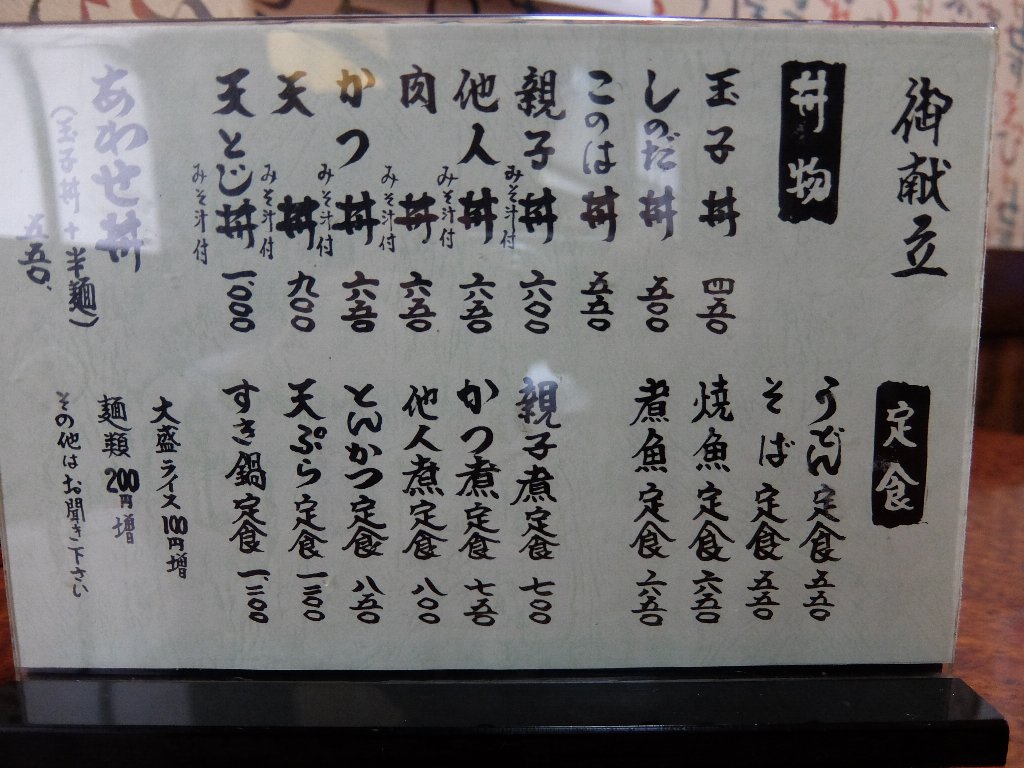 御献立
丼物
玉子丼 四五〇
しのだ丼 五〇〇
このは丼 五五〇
親子丼 みそ汁付 六〇〇
他人丼 みそ汁付 六五〇
肉丼 みそ汁付 六五〇
かつ丼 みそ汁付 六五〇
天丼 みそ汁付 九〇〇
天とじ丼 みそ汁付 一、〇〇〇
あわせ丼 五五〇
(玉子丼+半麺)
定食
うどん定食 五五〇
そば定食 五五〇
焼魚定食 六五〇
煮魚定食 六五〇
親子煮定食 七〇〇
かつ煮定食 七五〇
他人煮定食 八〇〇
とんかつ定食 八五〇
天ぷら定食 一、二〇〇
すき鍋定食 一、二〇〇
大盛ライス100円増
麺類200円増
その他はお聞き下さい